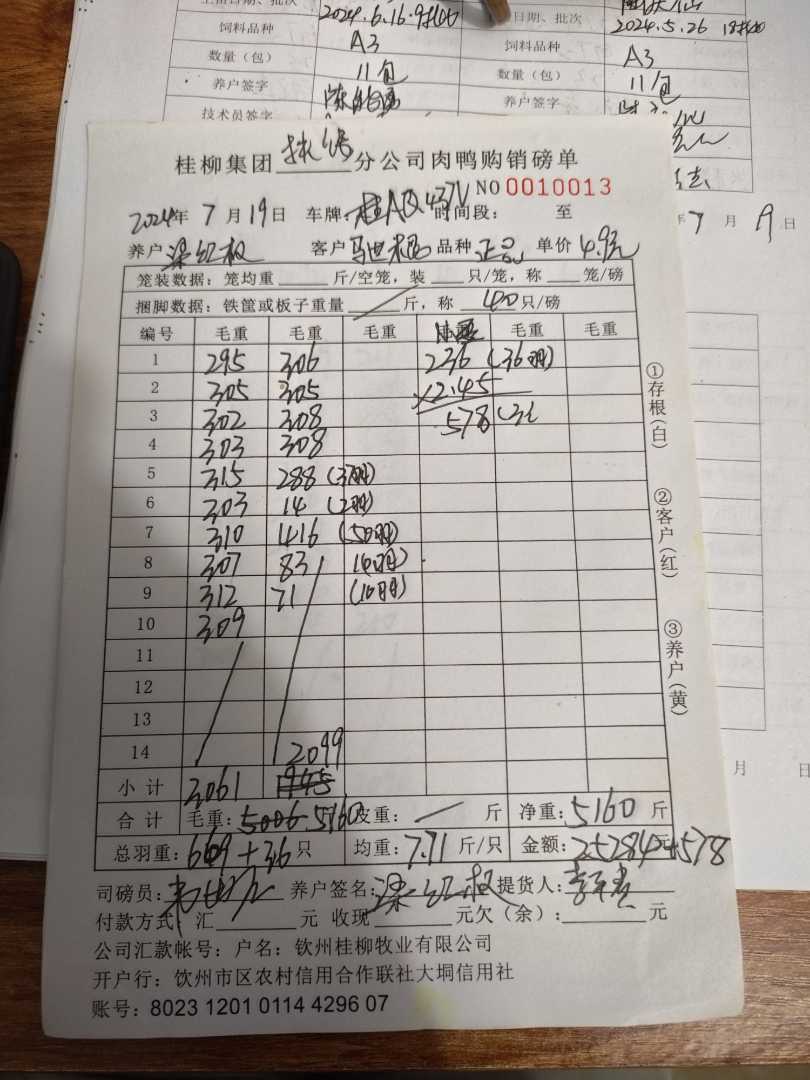 2024.6.16.9批
日期、批次
2024.5.26 18批
饲料品种 A3 饲料品种 A3
数量（包） 11包 数量（包） 11包
养户签字 养户签字
技术员签字
桂柳集团 分公司肉鸭购销磅单
NO 0010013
2024年7月19日 车牌: 桂A 437V 时间段: 至
养户 梁红权 客户 品种 正品 单价 4.9元
笼装数据: 笼均重 斤/空笼，装 只/笼，称 笼/磅
捆脚数据: 铁筐或板子重量 / 斤，称 40 只/磅
编号 毛重 毛重 毛重 毛重 毛重
1 295 306 236 (36羽)
2 305 305 ×2.45
3 302 308 578
4 303 308
5 315 288 (37羽)
6 303 14 (2羽)
7 310 416 (50羽)
8 307 83 (10羽)
9 312 71 (10羽)
10 309
11
12
13
14 2099
小计 3061 1945
合计 毛重: 5006 5160 皮重: / 斤 净重: 5160 斤
总羽重: 669+36 只 均重: 7.71 斤/只 金额: 25284+578 元
司磅员: 养户签名: 梁红权 提货人:
付款方式: 汇 元 收现 元欠（余）: 元
公司汇款帐号: 户名: 钦州桂柳牧业有限公司
开户行: 钦州市区农村信用合作联社大垌信用社
账号: 8023 1201 0114 4296 07
①存根(白)
②客户(红)
③养户(黄)
年7月19日
月 日